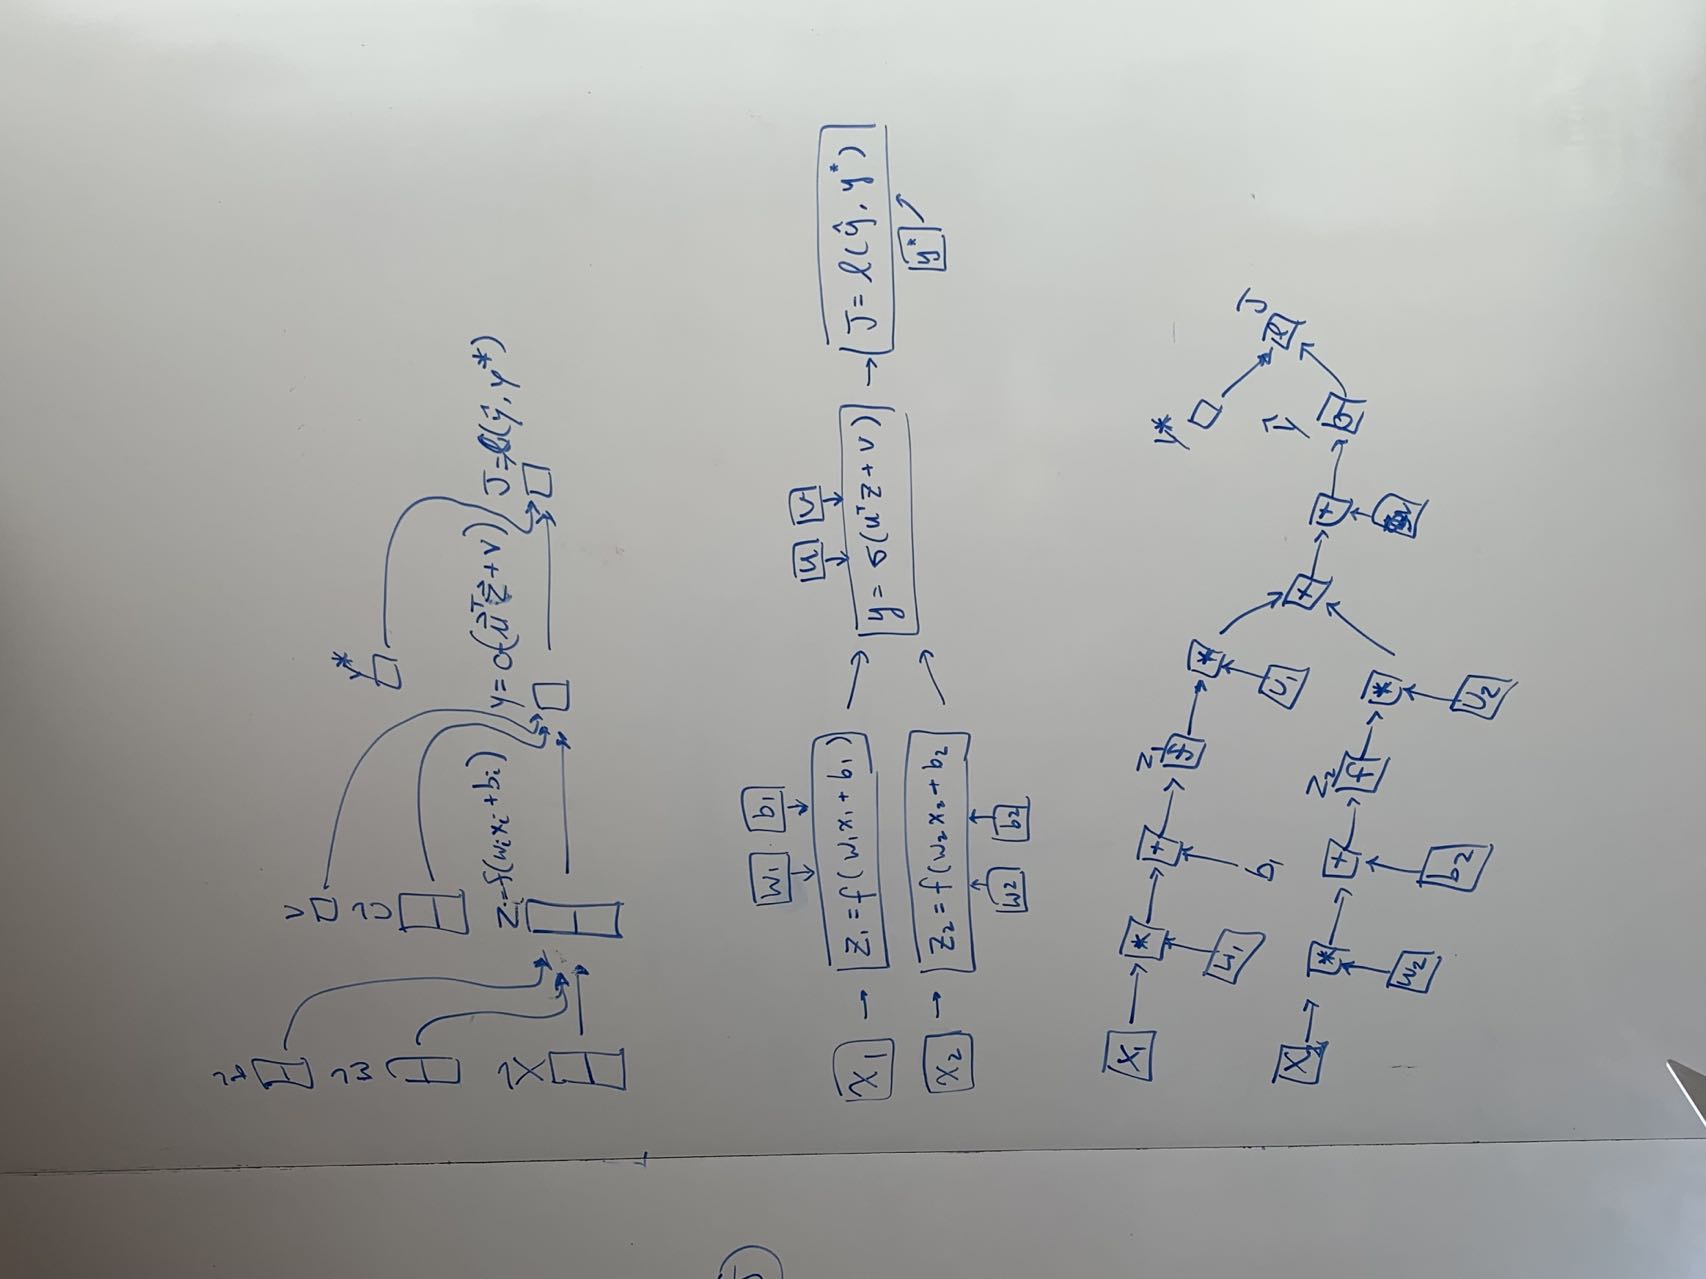 b⃗
w⃗
x⃗
v
u⃗
zᵢ=f(wᵢxᵢ+bᵢ)
y=σ(u⃗ᵀz⃗+v)
y*
J=ℓ(ŷ, y*)
w₁ b₁
x₁ → z₁=f(w₁x₁+b₁)
x₂ → z₂=f(w₂x₂+b₂
w₂ b₂
u v
y=σ(uᵀz+v)
J=ℓ(ŷ, y*)
y*
x₁ * + f *
z₁
w₁ b₁ u₁
x₂ * + f *
z₂
w₂ b₂ u₂
+ + σ ℓ
ŷ
y*
J